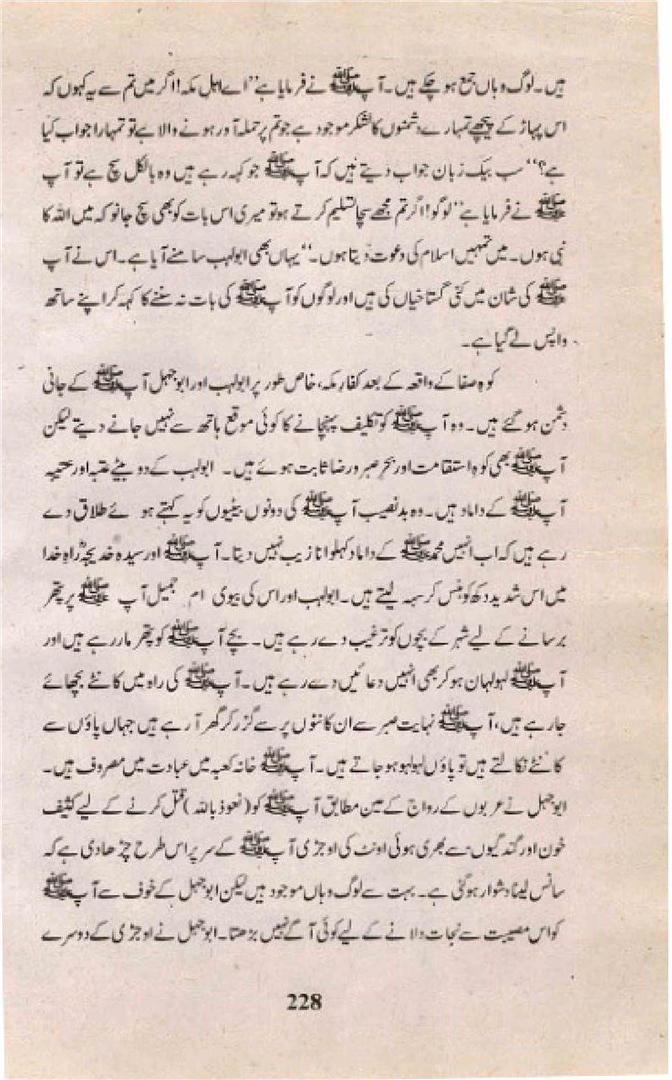 ہیں۔ لوگ وہاں جمع ہو چکے ہیں۔ آپ ﷺ نے فرمایا ہے ”اے اہل مکہ! اگر میں تم سے یہ کہوں کہ
اس پہاڑ کے پیچھے تمہارے دشمنوں کا لشکر موجود ہے جو تم پر حملہ آور ہونے والا ہے تو تمہارا جواب کیا
ہے؟“ سب بیک زبان جواب دیتے ہیں کہ آپ ﷺ جو کہہ رہے ہیں وہ بالکل سچ ہے تو آپ
ﷺ نے فرمایا ہے ”لوگو! اگر تم مجھے سچا تسلیم کرتے ہو تو میری اس بات کو بھی سچ جانو کہ میں اللہ کا
نبی ہوں۔ میں تمہیں اسلام کی دعوت دیتا ہوں۔“ یہاں بھی ابولہب سامنے آیا ہے۔ اس نے آپ
ﷺ کی شان میں کئی گستاخیاں کی ہیں اور لوگوں کو آپ ﷺ کی بات نہ سننے کا کہہ کر اپنے ساتھ
واپس لے گیا ہے۔
کوہِ صفا کے واقعہ کے بعد کفار مکہ، خاص طور پر ابولہب اور ابوجہل آپ ﷺ کے جانی
دشمن ہو گئے ہیں۔ وہ آپ ﷺ کو تکلیف پہنچانے کا کوئی موقع ہاتھ سے نہیں جانے دیتے لیکن
آپ ﷺ بھی کوہِ استقامت اور بحرِ صبر و رضا ثابت ہوئے ہیں۔ ابولہب کے دو بیٹے عتبہ اور عتیبہ
آپ ﷺ کے داماد ہیں۔ وہ بدنصیب آپ ﷺ کی دونوں بیٹیوں کو یہ کہتے ہوئے طلاق دے
رہے ہیں کہ اب انہیں محمد ﷺ کے داماد کہلوانا زیب نہیں دیتا۔ آپ ﷺ اور سیدہ خدیجہؓ راہِ خدا
میں اس شدید دکھ کو ہنس کر سہہ لیتے ہیں۔ ابولہب اور اس کی بیوی ام جمیل آپ ﷺ پر پتھر
برسانے کے لیے شہر کے بچوں کو ترغیب دے رہے ہیں۔ بچے آپ ﷺ کو پتھر مار رہے ہیں اور
آپ ﷺ لہولہان ہو کر بھی انہیں دعائیں دے رہے ہیں۔ آپ ﷺ کی راہ میں کانٹے بچھائے
جا رہے ہیں، آپ ﷺ نہایت صبر سے ان کانٹوں پر سے گزر کر گھر آ رہے ہیں جہاں پاؤں سے
کانٹے نکالتے ہیں تو پاؤں لہولہو ہو جاتے ہیں۔ آپ ﷺ خانہ کعبہ میں عبادت میں مصروف ہیں۔
ابوجہل نے عربوں کے رواج کے عین مطابق آپ ﷺ کو (نعوذ باللہ) قتل کرنے کے لیے کثیف
خون اور گندگیوں سے بھری ہوئی اونٹ کی اوجڑی آپ ﷺ کے سر پر اس طرح چڑھا دی ہے کہ
سانس لینا دشوار ہو گئی ہے۔ بہت سے لوگ وہاں موجود ہیں لیکن ابوجہل کے خوف سے آپ ﷺ
کو اس مصیبت سے نجات دلانے کے لیے کوئی آگے نہیں بڑھتا۔ ابوجہل نے اوجڑی کے دوسرے
228